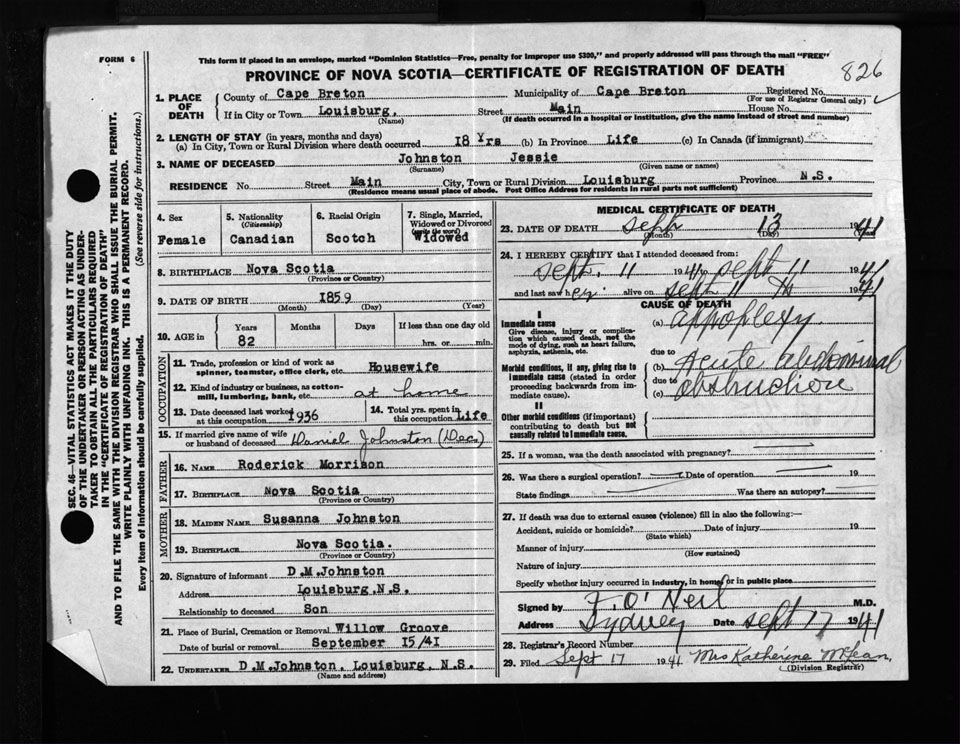 FORM 6
This form if placed in an envelope, marked "Dominion Statistics—Free, penalty for improper use $300," and properly addressed will pass through the mail "FREE"
PROVINCE OF NOVA SCOTIA—CERTIFICATE OF REGISTRATION OF DEATH
826
SEC. 46—VITAL STATISTICS ACT MAKES IT THE DUTY
OF THE UNDERTAKER OR PERSON ACTING AS UNDER-
TAKER TO OBTAIN ALL THE PARTICULARS REQUIRED
IN THE "CERTIFICATE OF REGISTRATION OF DEATH"
AND TO FILE THE SAME WITH THE DIVISION REGISTRAR WHO SHALL ISSUE THE BURIAL PERMIT.
WRITE PLAINLY WITH UNFADING INK. THIS IS A PERMANENT RECORD.
Every item of information should be carefully supplied. (See reverse side for instructions.)
1. PLACE OF DEATH County of Cape Breton Municipality of Cape Breton Registered No.
(For use of Registrar General only)
If in City or Town Louisburg, Street Main House No.
(Name) (If death occurred in a hospital or institution, give the name instead of street and number)
2. LENGTH OF STAY (in years, months and days)
(a) In City, Town or Rural Division where death occurred 18 Yrs (b) In Province Life (c) In Canada (if immigrant)
3. NAME OF DECEASED Johnston Jessie
(Surname) (Given name or names)
RESIDENCE No. Street Main City, Town or Rural Division Louisburg Province N.S.
(Residence means usual place of abode. Post Office Address for residents in rural parts not sufficient)
4. Sex 5. Nationality (Citizenship) 6. Racial Origin 7. Single, Married, Widowed or Divorced (write the word)
Female Canadian Scotch Widowed
8. BIRTHPLACE Nova Scotia
(Province or Country)
9. DATE OF BIRTH 1859
(Month) (Day) (Year)
10. AGE in Years Months Days If less than one day old
82 hrs. or min.
OCCUPATION
11. Trade, profession or kind of work as
spinner, teamster, office clerk, etc. Housewife
12. Kind of industry or business, as cotton-
mill, lumbering, bank, etc. at home
13. Date deceased last worked at this occupation 1936 14. Total yrs. spent in this occupation Life
15. If married give name of wife or husband of deceased Daniel Johnston (Dec)
FATHER
16. NAME Roderick Morrison
17. BIRTHPLACE Nova Scotia
(Province or Country)
MOTHER
18. MAIDEN NAME Susanna Johnston
19. BIRTHPLACE Nova Scotia.
(Province or Country)
20. Signature of informant D.M.Johnston
Address Louisburg,N.S.
Relationship to deceased Son
21. Place of Burial, Cremation or Removal Willow Groove
Date of burial or removal September 15/41
22. UNDERTAKER D.M.Johnston, Louisburg, N.S.
(Name and address)
MEDICAL CERTIFICATE OF DEATH
23. DATE OF DEATH Sept 13 1941
(Month) (Day) (Year)
24. I HEREBY CERTIFY that I attended deceased from:
Sept. 11 1941 to Sept 11 1941
and last saw her alive on Sept 11 th 1941
CAUSE OF DEATH
I
Immediate cause (a) appoplexy
Give disease, injury or complica-
tion which caused death, not the
mode of dying, such as heart failure,
asphyxia, asthenia, etc.
due to
Morbid conditions, if any, giving rise to (b) Acute abdominal
immediate cause (stated in order due to
proceeding backwards from im- (c) obstruction
mediate cause).
II
Other morbid conditions (if important)
contributing to death but not
causally related to immediate cause.
25. If a woman, was the death associated with pregnancy?
26. Was there a surgical operation? Date of operation 19
State findings Was there an autopsy?
27. If death was due to external causes (violence) fill in also the following:—
Accident, suicide or homicide? Date of injury 19
(State which)
Manner of injury
(How sustained)
Nature of injury
Specify whether injury occurred in industry, in home or in public place
Signed by F. O'Neil M.D.
Address Sydney Date Sept 17 1941
28. Registrar's Record Number
29. Filed Sept 17 1941 Mrs Katherine McLean,
(Division Registrar)